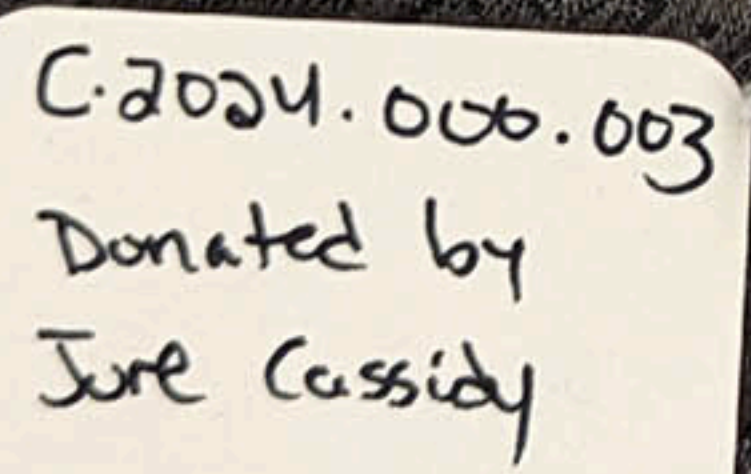 C.2024.006.003
Donated by
June Cassidy